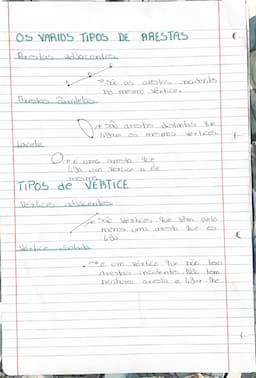 OS VARIOS TIPOS DE ARESTAS
Arestas adjacentes
São as arestas incidentes
no mesmo vértice.
Arestas Paralelas
São arestas distintas que
ligam os mesmos vértices
Lacete
é uma aresta que
liga um vértice a ele
mesmo
TIPOS de VERTICE
Vértices adjacentes
São vértices que têm pelo
menos uma aresta que os
liga
Vértice isolado
é um vértice que não tem
arestas incidentes. Não tem
nenhuma aresta a ligar-lhe